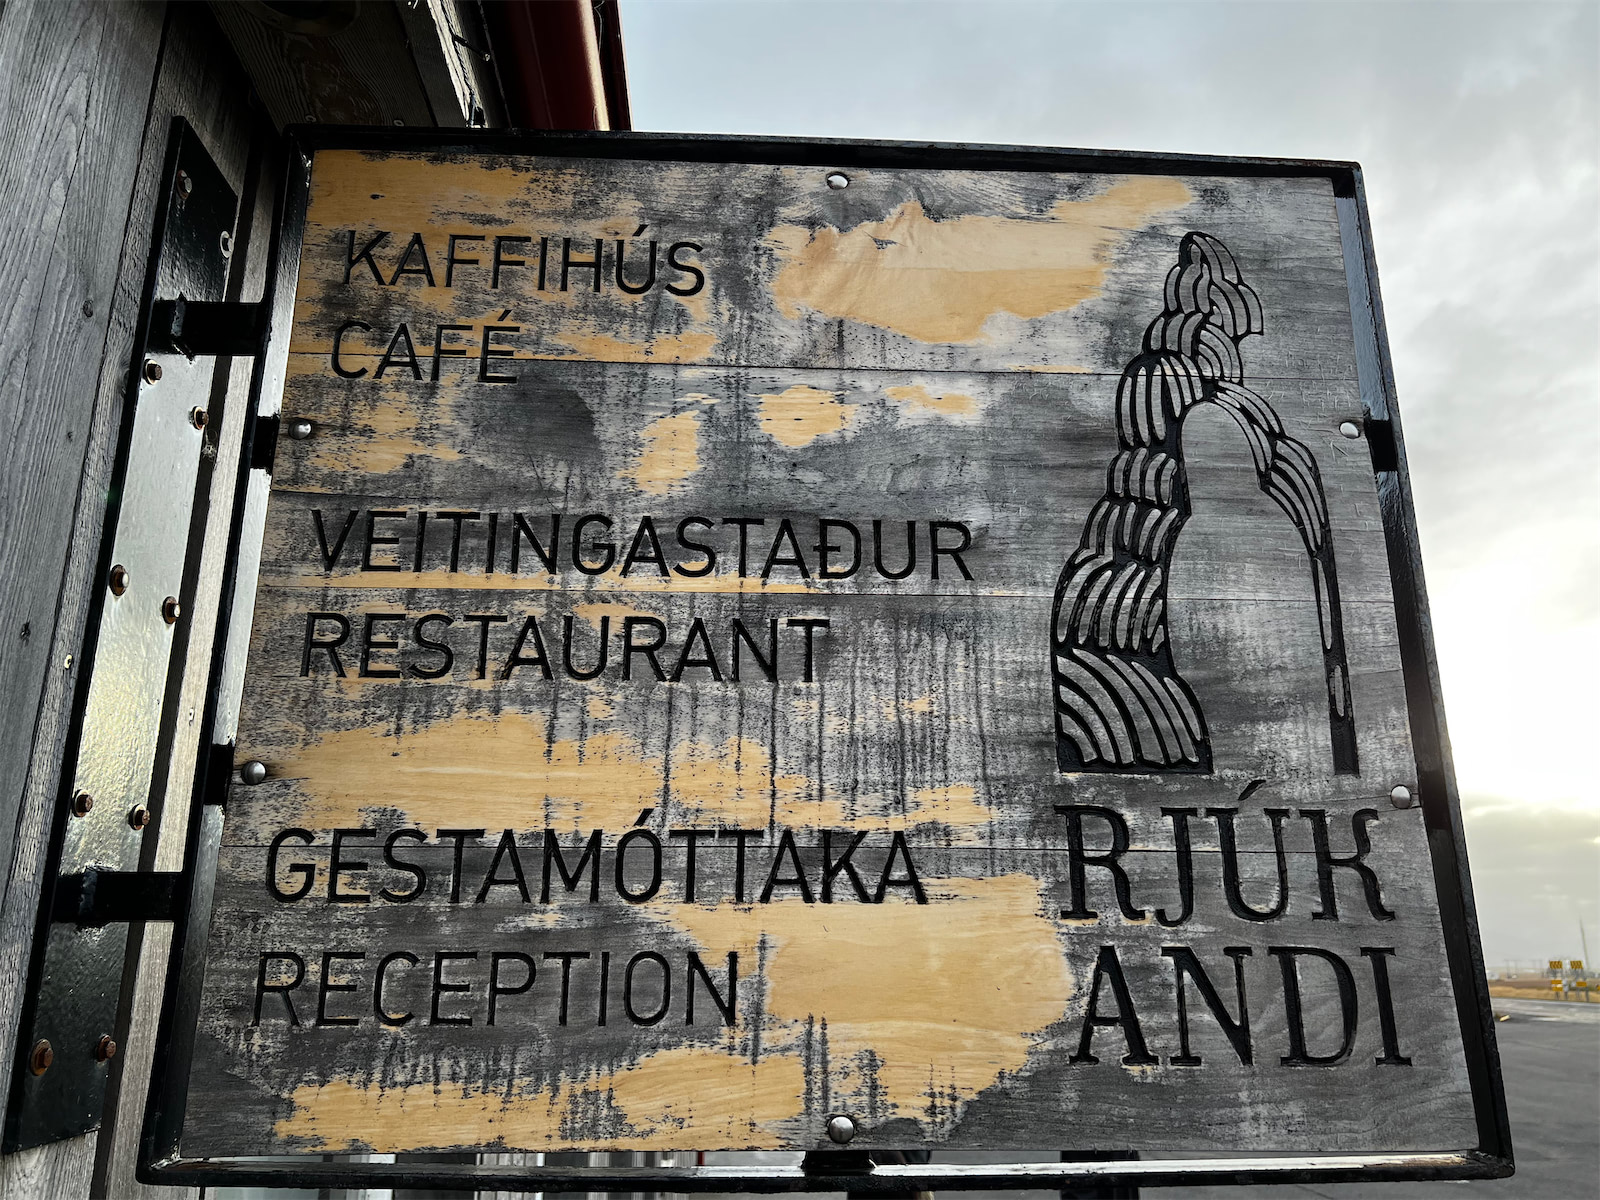 KAFFIHÚS
CAFÉ
VEITINGASTAÐUR
RESTAURANT
GESTAMÓTTAKA
RECEPTION
RJÚK
ANDI